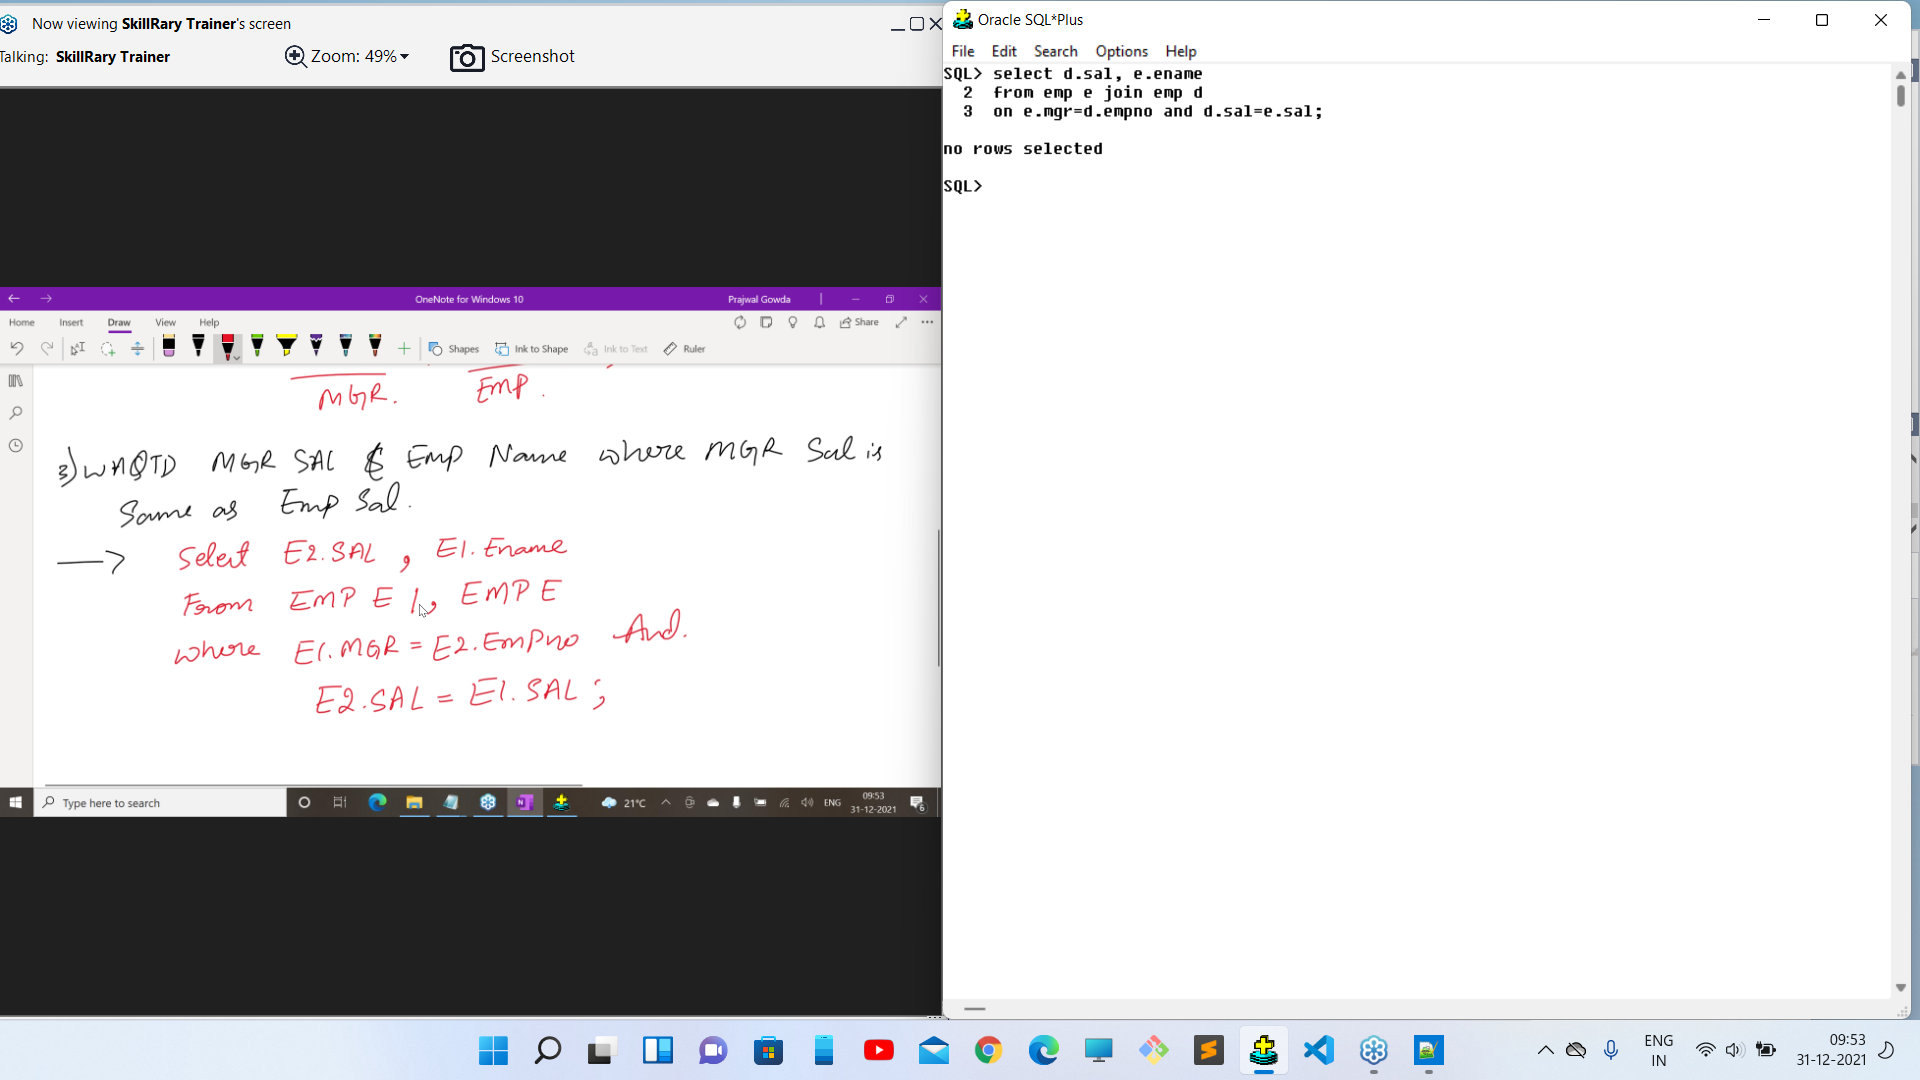 Now viewing SkillRary Trainer's screen
Talking: SkillRary Trainer
Zoom: 49%
Screenshot
OneNote for Windows 10
Prajwal Gowda
Home Insert Draw View Help
Share
Shapes Ink to Shape Ink to Text Ruler
MGR. EMP.
3) WAQTD MGR SAL & Emp Name where MGR Sal is
Same as Emp Sal.
Select E2.SAL , E1.Ename
From EMP E1, EMP E
where E1.MGR = E2.Empno And.
E2.SAL = E1.SAL ;
Type here to search
21°C
ENG
09:53
31-12-2021
6
Oracle SQL*Plus
File Edit Search Options Help
SQL> select d.sal, e.ename
2 from emp e join emp d
3 on e.mgr=d.empno and d.sal=e.sal;
no rows selected
SQL>
ENG
IN
09:53
31-12-2021